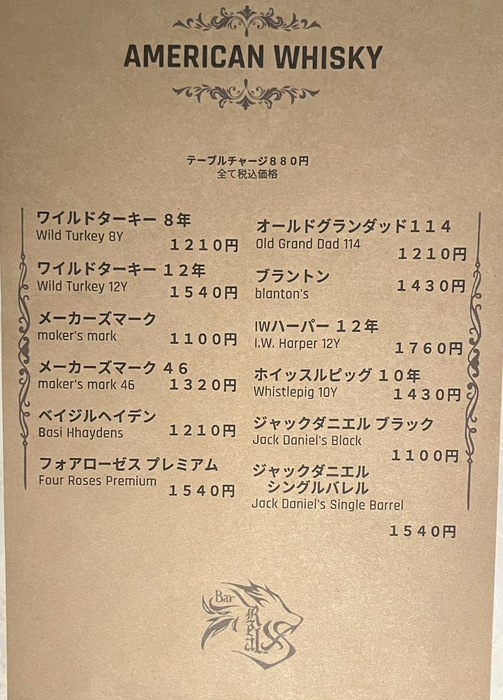 AMERICAN WHISKY
テーブルチャージ８８０円
全て税込価格
ワイルドターキー ８年
Wild Turkey 8Y
１２１０円
ワイルドターキー １２年
Wild Turkey 12Y
１５４０円
メーカーズマーク
maker's mark
１１００円
メーカーズマーク ４６
maker's mark 46
１３２０円
ベイジルヘイデン
Basi Hhaydens
１２１０円
フォアローゼス プレミアム
Four Roses Premium
１５４０円
オールドグランダッド１１４
Old Grand Dad 114
１２１０円
ブラントン
blanton's
１４３０円
IWハーパー １２年
I.W. Harper 12Y
１７６０円
ホイッスルピッグ １０年
Whistlepig 10Y
１４３０円
ジャックダニエル ブラック
Jack Daniel's Black
１１００円
ジャックダニエル
シングルバレル
Jack Daniel's Single Barrel
１５４０円
Bar